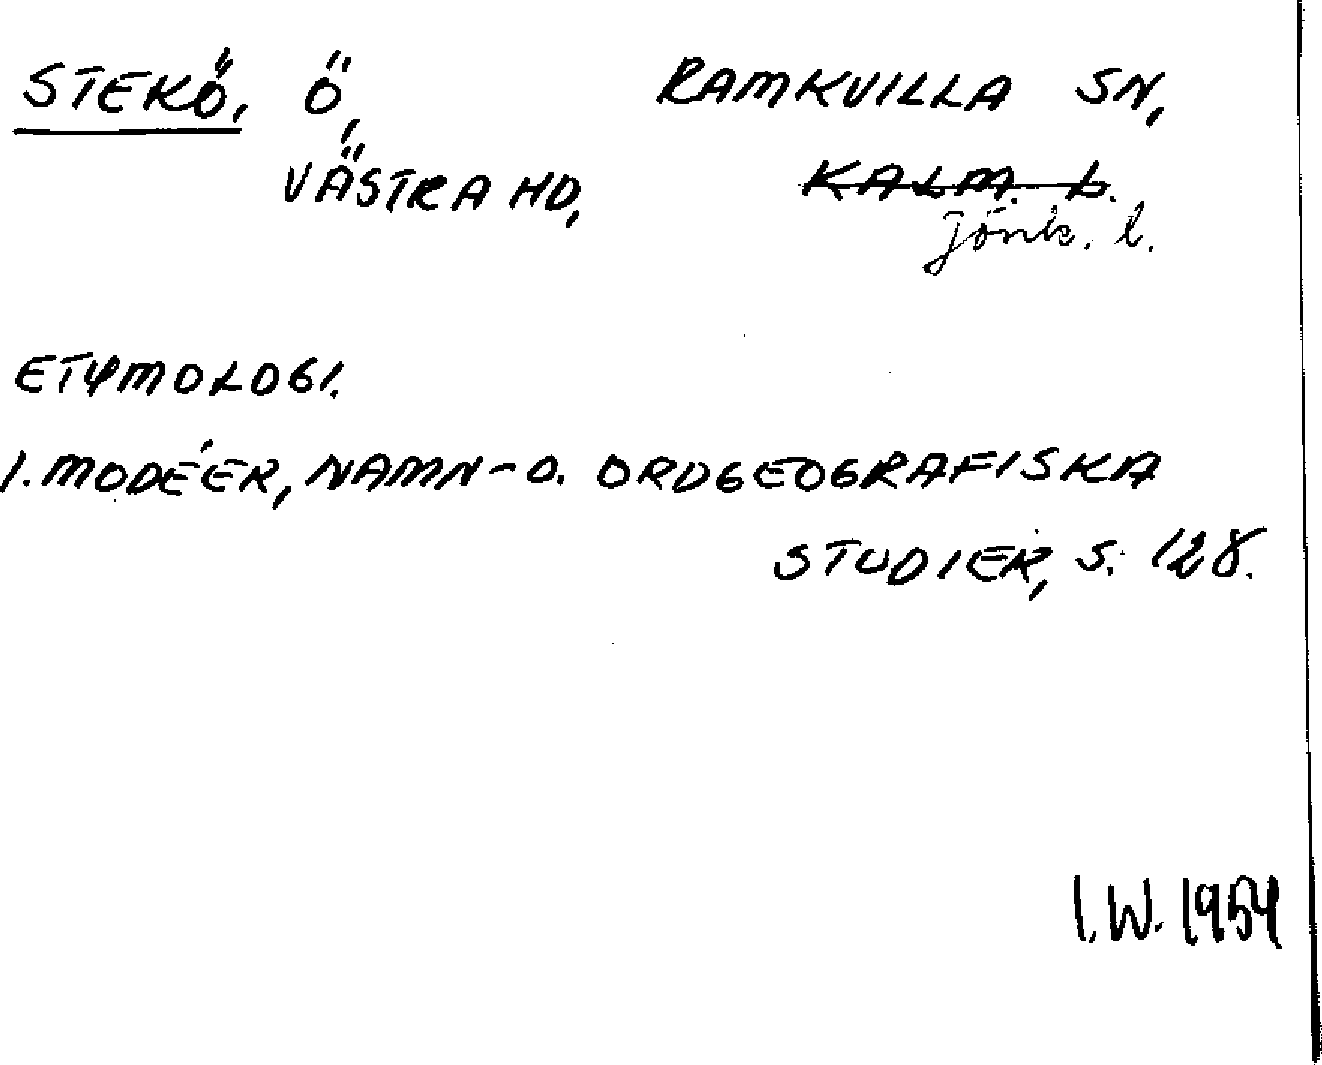 STEKÖ, Ö, RAMKVILLA SN,
VÄSTRA HD, KALM. L.
Jönk. l.
ETYMOLOGI.
I. MODÉER, NAMN- O. ORDGEOGRAFISKA
STUDIER, S. 128.
I.W. 1954